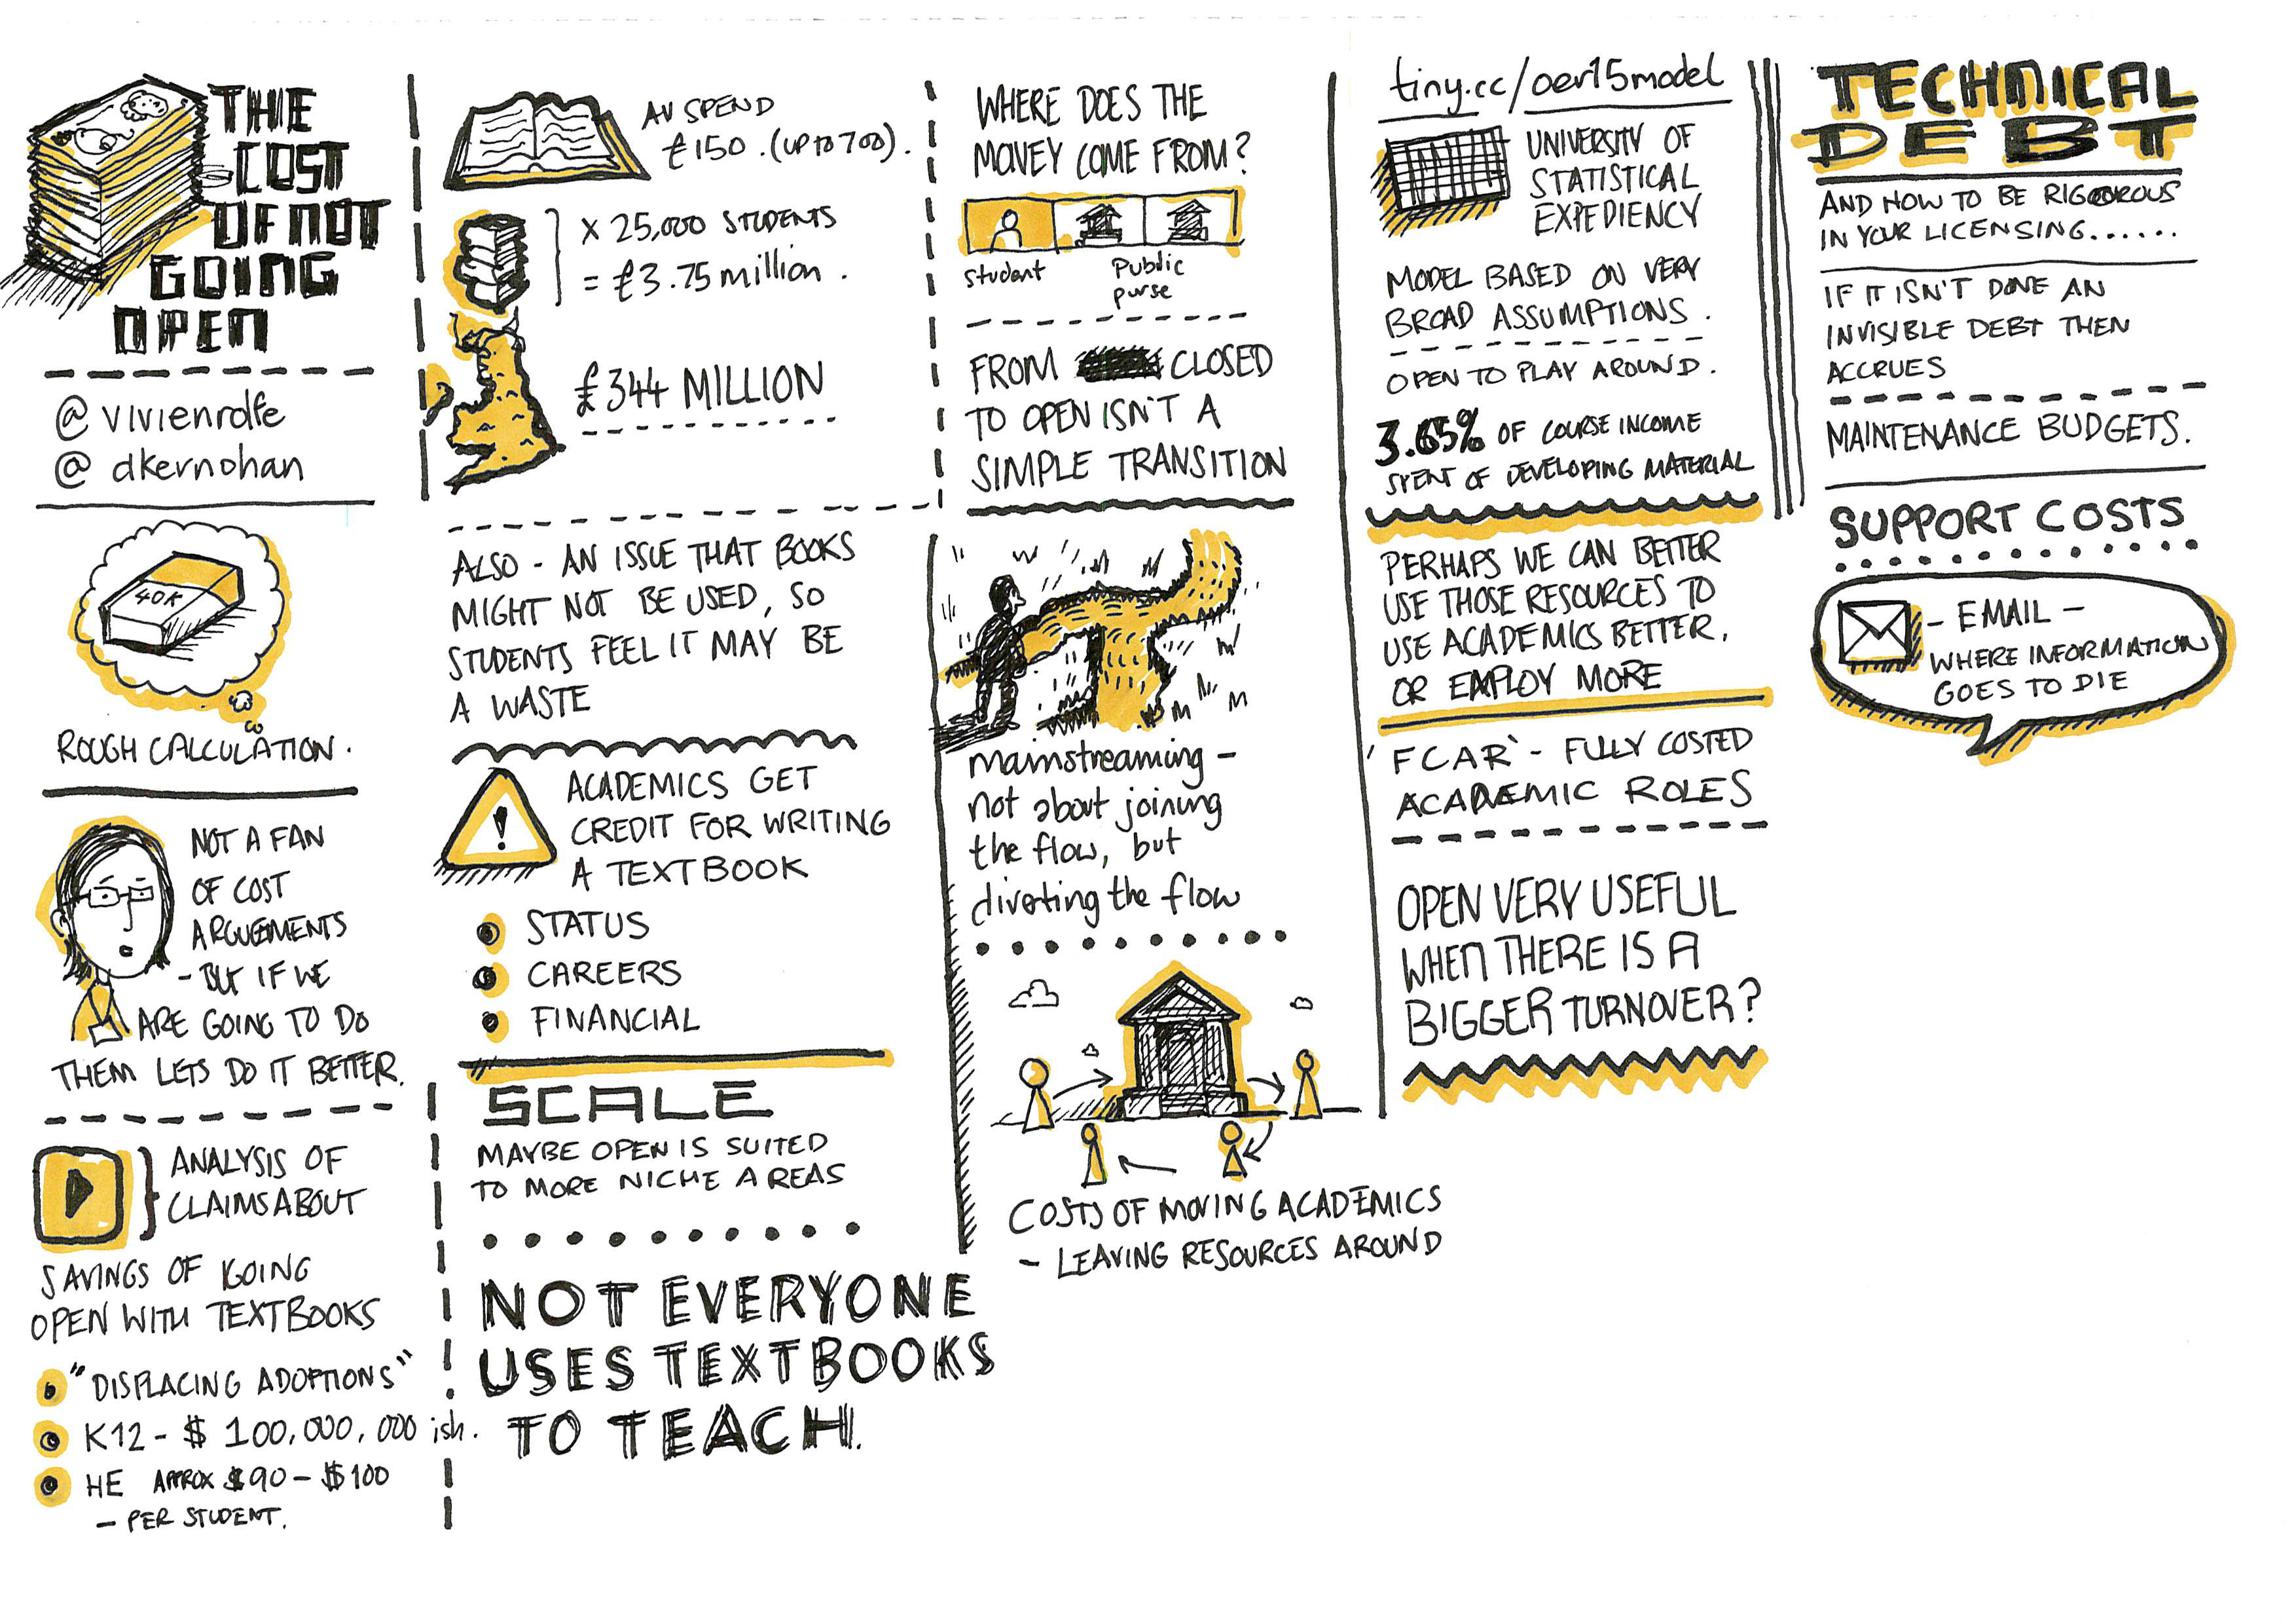 THE
COST
OF NOT
GOING
OPEN
@vivienrolfe
@dkernohan
40K
ROUGH CALCULATION.
NOT A FAN
OF COST
ARGUEMENTS
- BUT IF WE
ARE GOING TO DO
THEM LETS DO IT BETTER.
ANALYSIS OF
CLAIMS ABOUT
SAVINGS OF GOING
OPEN WITH TEXTBOOKS
"DISPLACING ADOPTIONS"
K12 - $ 100,000,000 ish.
HE APPROX $90 - $100
- PER STUDENT.
AV SPEND
£150. (UP TO 700).
x 25,000 STUDENTS
= £3.75 million.
£344 MILLION
ALSO - AN ISSUE THAT BOOKS
MIGHT NOT BE USED, SO
STUDENTS FEEL IT MAY BE
A WASTE
!
ACADEMICS GET
CREDIT FOR WRITING
A TEXTBOOK
STATUS
CAREERS
FINANCIAL
SCALE
MAYBE OPEN IS SUITED
TO MORE NICHE AREAS
NOT EVERYONE
USES TEXTBOOKS
TO TEACH.
WHERE DOES THE
MONEY COME FROM?
student
Public
purse
FROM CLOSED
TO OPEN ISN'T A
SIMPLE TRANSITION
mainstreaming -
not about joining
the flow, but
diverting the flow
COSTS OF MOVING ACADEMICS
- LEAVING RESOURCES AROUND
tiny.cc/oer15model
UNIVERSITY OF
STATISTICAL
EXPEDIENCY
MODEL BASED ON VERY
BROAD ASSUMPTIONS.
OPEN TO PLAY AROUND.
3.65% OF COURSE INCOME
SPENT OF DEVELOPING MATERIAL
PERHAPS WE CAN BETTER
USE THOSE RESOURCES TO
USE ACADEMICS BETTER.
OR EMPLOY MORE
'FCAR' - FULLY COSTED
ACADEMIC ROLES
OPEN VERY USEFUL
WHEN THERE IS A
BIGGER TURNOVER?
TECHNICAL
DEBT
AND HOW TO BE RIGOROUS
IN YOUR LICENSING......
IF IT ISN'T DONE AN
INVISIBLE DEBT THEN
ACCRUES
MAINTENANCE BUDGETS.
SUPPORT COSTS
- EMAIL -
WHERE INFORMATION
GOES TO DIE